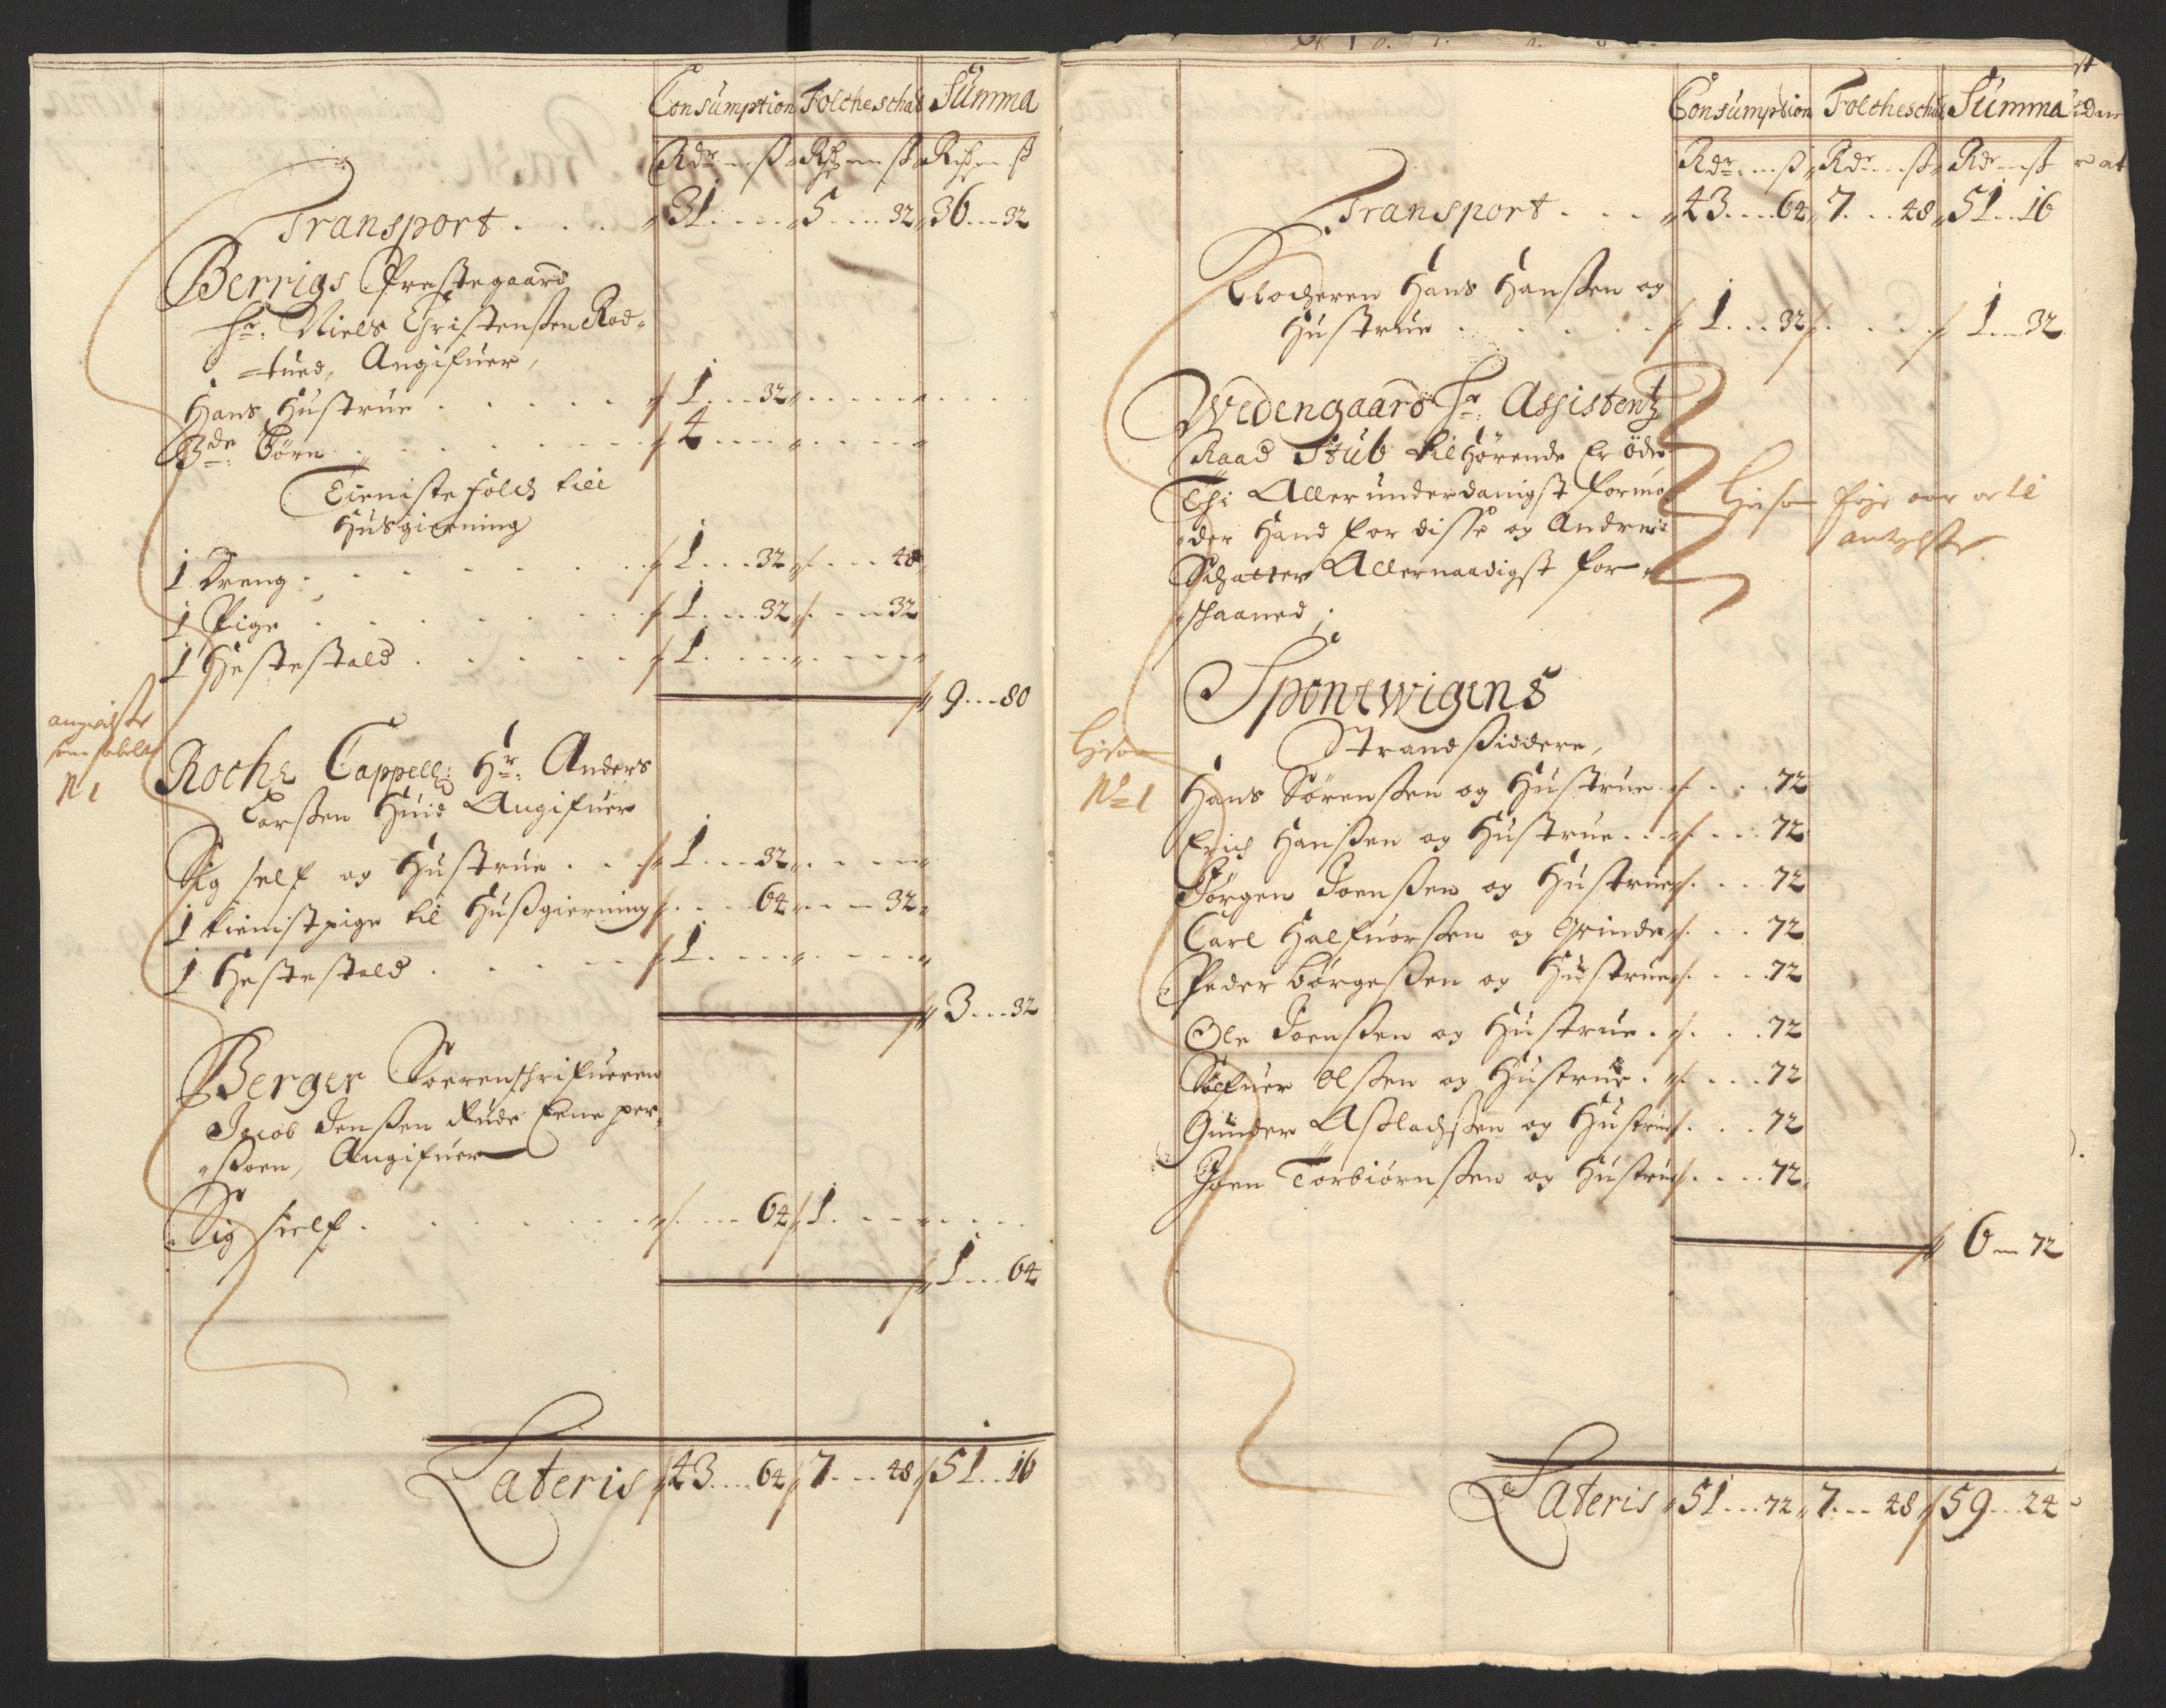 Consumption Folcheschat Summa
Rdr ß Rdr ß Rdr ß
Transport 31 5 32 36 32
Berrigs Prestegaard
Hr: Niels Christensen Rod-
=tued, Angifuer,
Hans Hustrue 1 32
3de: Børn 4
Tieniste folch till
Husgierning
1 Dreng 1 32 48
1 Pige 1 32 32
1 Hestestald 1
9 80
N 1
Roche Cappell: Hr: Anders
Larssen Huid Angifuer
Sig self og Hustrue 1 32
1 tienistpige til Hussgierning 64 32
1 Hestestald 1
3 32
Berger Soerenschrifueren
Jacob Jenssen Rude Eene per-
soen, Angifuer
Sig self 64 1
1 64
Lateris 43 64 7 48 51 16
Consumption Folcheschat Summa
Rdr ß Rdr ß Rdr ß
Transport 43 64 7 48 51 16
Klocheren Hans Hanssen og
Hustrue 1 32 1 32
Wedengaard Hr: Assistentz
Raad Stub tilhørende Er øde
Thi Allerunderdanigst formo-
der Hand for disse og Andre
Schatter Allernaadigst for-
schaaned;
Sponewigens
Strandsiddere,
No 1
Hans Sørenssen og Hustrue 72
Erich Hanssen og Hustrue 72
Jørgen Joenssen og Hustrue 72
Carl Halfuorssen og Qvinde 72
Peder Børgessen og Hustrue 72
Ole Joenssen og Hustrue 72
Sølfuer Olssen og Hustrue 72
Gunder Asslachssen og Hustrue 72
Joen Torbiørnssen og Hustrue 72
6 72
Lateris 51 72 7 48 59 24